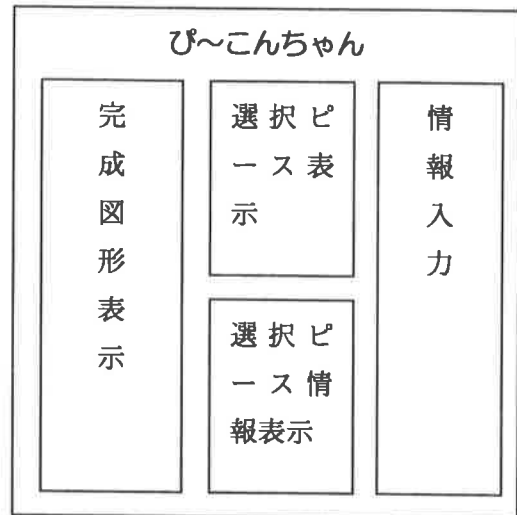 ぴ～こんちゃん
完
成
図
形
表
示
選択ピ
ース表
示
選択ピ
ース情
報表示
情
報
入
力